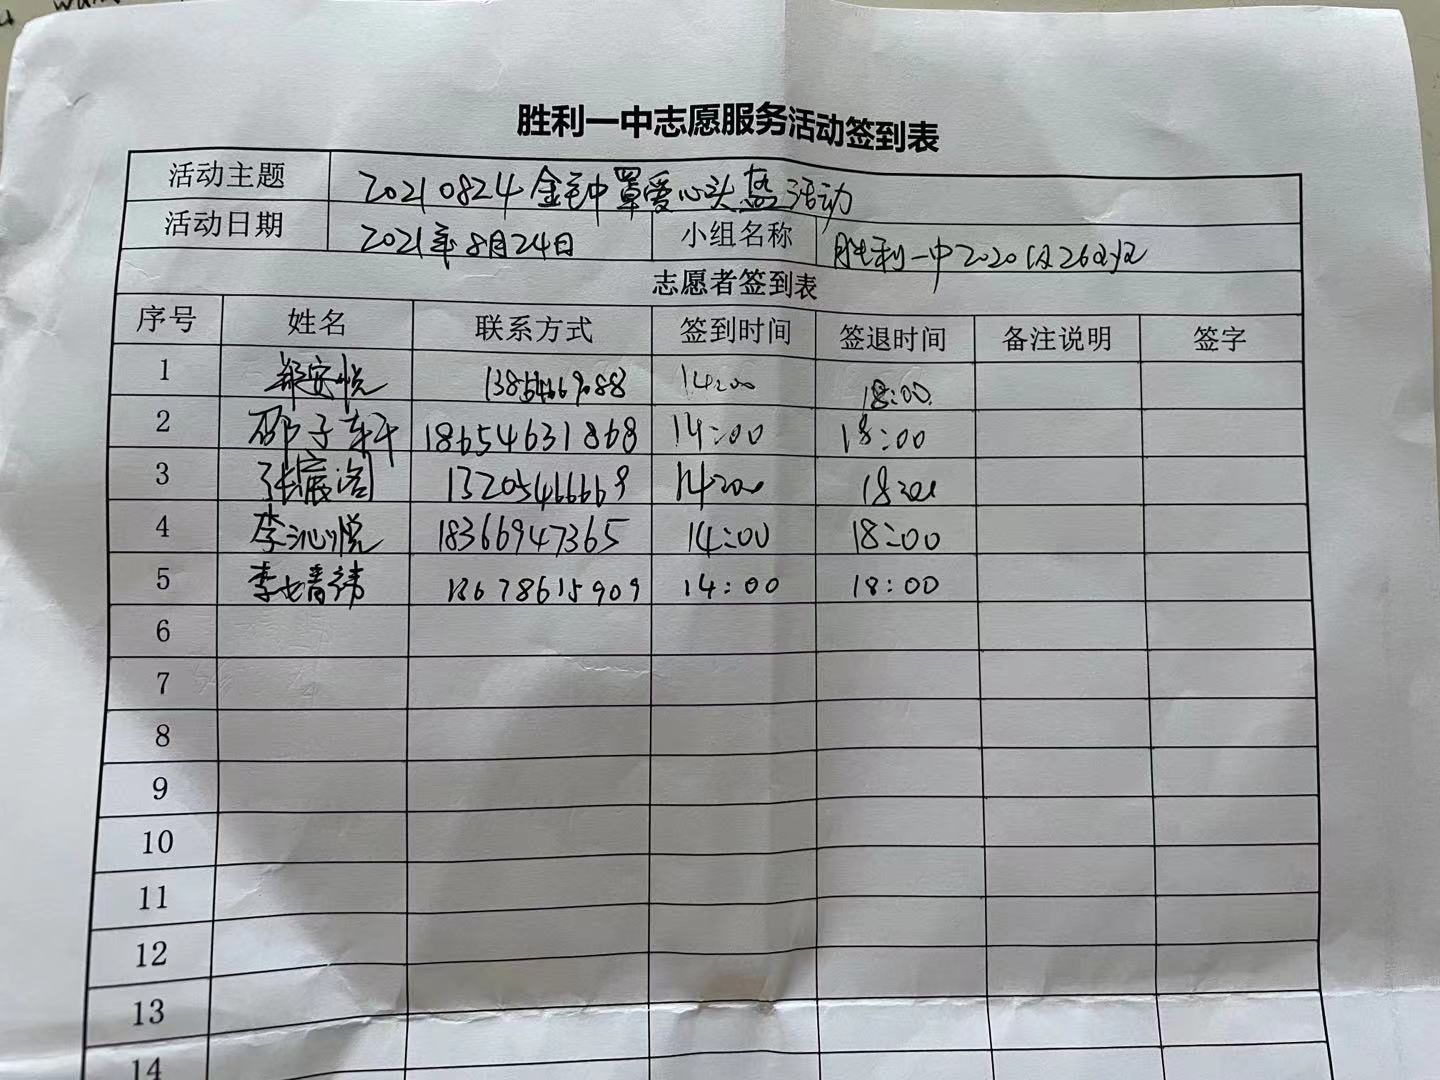 胜利一中志愿服务活动签到表
活动主题 20210824金钟罩爱心头盔活动
活动日期 2021年8月24日 小组名称 胜利一中2020级26班
志愿者签到表
序号 姓名 联系方式 签到时间 签退时间 备注说明 签字
1 郑安悦 14:00 18:00
2 邵子轩 18654631868 14:00 18:00
3 14:00 18:00
4 李沁悦 18366947365 14:00 18:00
5 李 18678615909 14:00 18:00
6
7
8
9
10
11
12
13
14